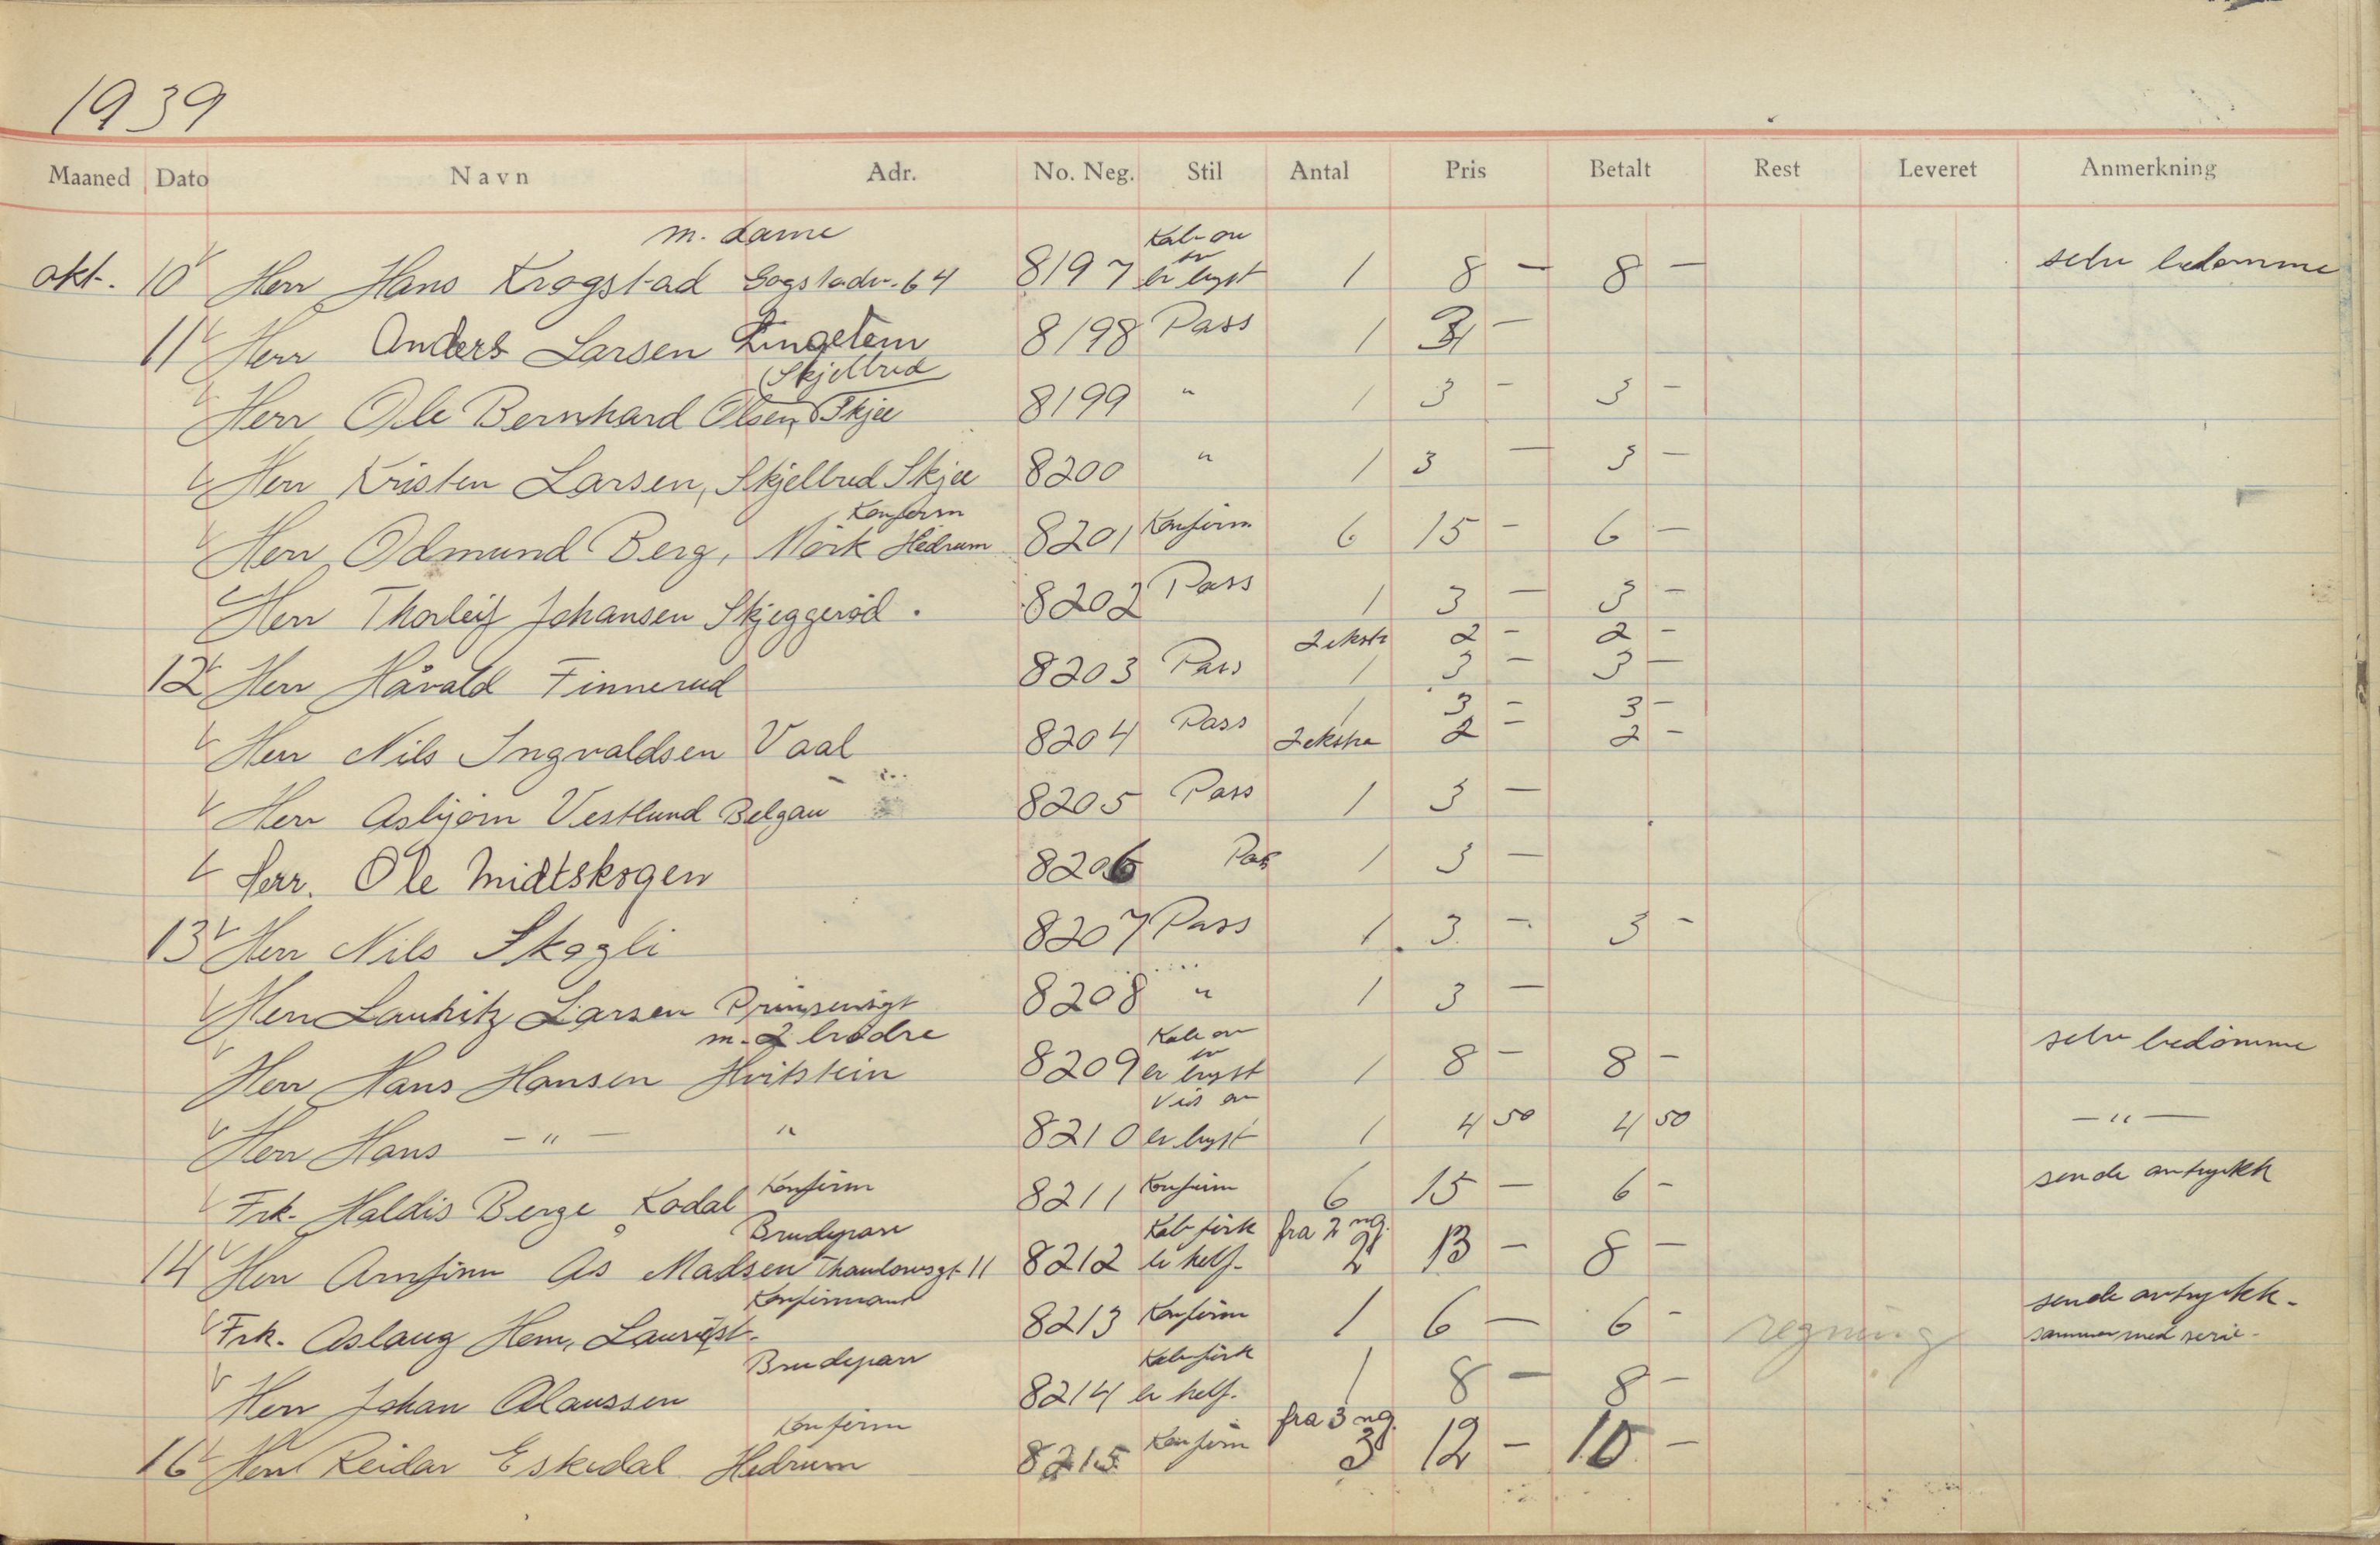 1939
Maaned Dato Navn Adr. No. Neg. Stil Antal Pris Betalt Rest Leveret Anmerkning
m. dame Kab on
okt. 10 Herr Hans Krogstad Gogstadv. 64 8197 er bryst 1 8 — 8 — selv bedømme
11 Herr Anders Larsen 8198 Pass 1 3 —
Skjelbred
Herr Ole Bernhard Olsen, Skjee 8199 " 1 3 — 3 —
Herr Kristen Larsen, Skjelbred Skjee 8200 " 1 3 — 3 —
Konfirm
Herr Odmund Berg, Mörk Hedrum 8201 Konfirm 6 15 — 6 —
Herr Thorleif Johansen Skjeggeröd. 8202 Pass 1 3 — 3 —
2 ekstr 2 — 2 —
12 Herr Håvald Finnerud 8203 Pass 1 3 — 3 —
1 3 — 3 —
Herr Nils Ingvaldsen Vaal 8204 Pass 2 ekstra 2 — 2 —
Herr Asbjørn Vestlund Belgau 8205 Pass 1 3 —
Herr. Ole Midtskogen 8206 Pas 1 3 —
13 Herr Nils Skogli 8207 Pass 1 3 — 3 —
Herr Lauritz Larsen Prinsensgt 8208 " 1 3 —
m. 2 brødre Kab on
Herr Hans Hansen Hvitstein 8209 er bryst 1 8 — 8 — selv bedömme
Vis on
Herr Hans — " — " 8210 er bryst 1 4 50 4 50 — " —
Konfirm
Frk. Haldis Berge Kodal 8211 Konfirm 6 15 — 6 — sende avtrykk
Brudepar Kab fra 2 ng.
14 Herr Arnfinn Ås Madsen Thaulowsgt 11 8212 helf. 2 13 — 8 —
Konfirmant
Frk. Aslaug Hem, 8213 Konfirm 1 6 — 6 — regning sende avtrykk.
sammen med serie.
Brudepar
Herr Johan Olaussen 8214 helf. 1 8 — 8 —
Konfirm fra 3 ng.
16 Herr Reidar Eskedal Hedrum 8215 Konfirm 3 12 — 10 —